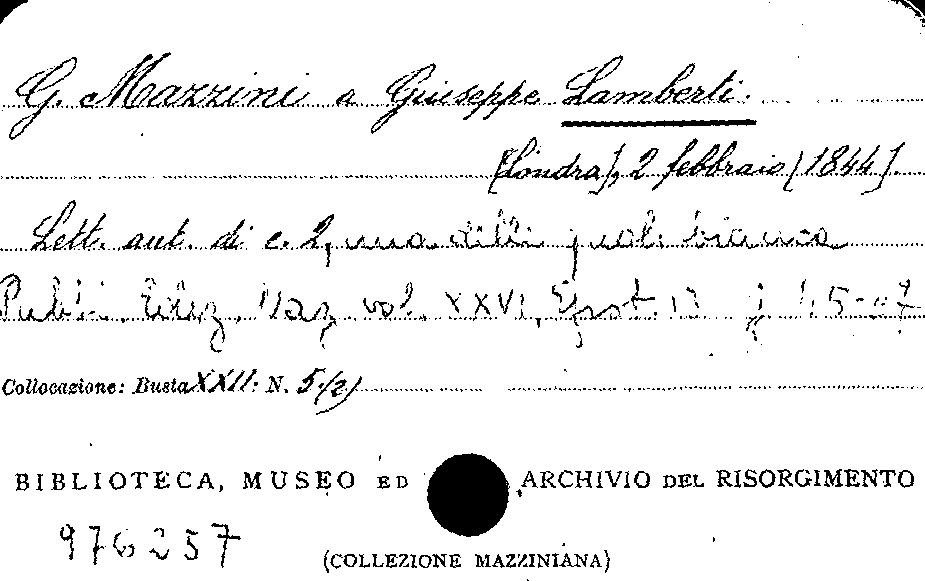 G. Mazzini a Giuseppe Lamberti.
[Londra], 2 febbraio [1844].
Lett. aut. di c. 2, una delle quali bianca
Pubbl. Ediz. Naz. vol. XXVI, Epist.
Collocazione: Busta XXII: N. 5/2)
BIBLIOTECA, MUSEO ED ARCHIVIO DEL RISORGIMENTO
976257
(COLLEZIONE MAZZINIANA)